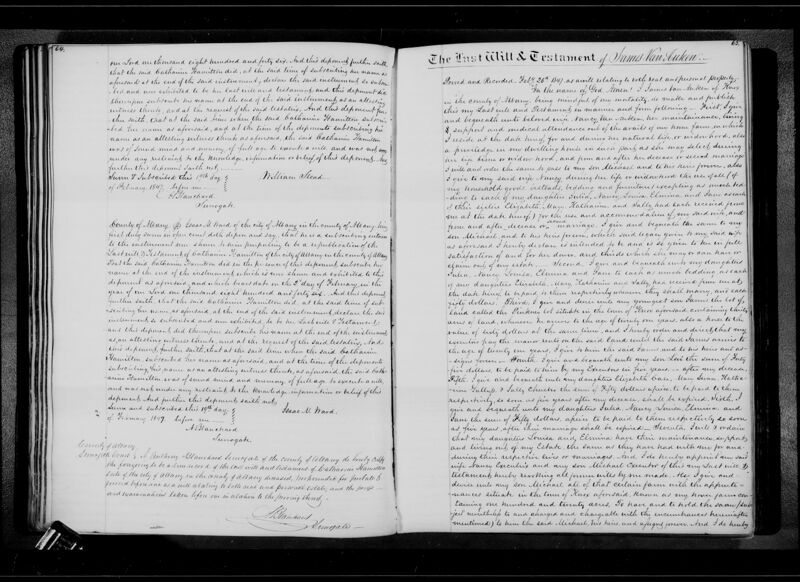 64.
our Lord one thousand eight hundred and forty six. And this deponent further saith
that the said Catharine Hamilton did, at the said time of subscribing her name as
aforesaid at the end of the said instrument, declare the said instrument so subscri-
bed and now exhibited to be her last will and testament, and this deponent did
thereupon subscribe his name at the end of the said instrument as an attesting
witness thereto, and at the request of the said testatrix. And this deponent fur-
ther saith, that at the said time when the said Catharine Hamilton subscri-
bed her name as aforesaid, and at the time of the deponents subscribing his
name as an attesting witness thereto as aforesaid the said Catharine Hamilton
was of sound mind and memory of full age to execute a will, and was not
under any restraint to the knowledge, information or belief of this deponent. And
further this deponent saith not.
Sworn & Subscribed this 19th day
of February 1847. before me
William Stead
A Blanchard
Surrogate.
County of Albany, SS Isaac M. Ward of the city of Albany in the county of Albany being
first duly sworn in open court doth depose and say, that he is a subscribing witness
to the instrument now shown to him purporting to be a republication of the
Last will & Testament of Catharine Hamilton of the city of Albany in the county of Albany
that the said Catharine Hamilton did in the presence of this deponent subscribe her
name at the end of the instrument which is now shown and exhibited to this
deponent as aforesaid, and which bears date on the 2d day of February, in the
year of our Lord one thousand eight hundred and forty six. And this deponent
further saith, that the said Catharine Hamilton did, at the said time of sub-
scribing her name as aforesaid, at the end of the said instrument, declare the said
instrument so subscribed and now exhibited, to be her Last will & Testament
and this deponent did thereupon subscribe his name at the end of the instrument
as an attesting witness thereto, and at the request of the said testatrix. And
this deponent further saith, that at the said time when the said Catharine
Hamilton subscribed her name as aforesaid, and at the time of the deponents
subscribing his name as an attesting witness thereto, as aforesaid, the said Cath-
arine Hamilton was of sound mind and memory of full age to execute a will,
and was not under any restraint to the knowledge information or belief of this
deponent. And further this deponent saith not.
Sworn and subscribed this 19th day
of February 1847. before me
Isaac M. Ward.
A Blanchard
Surrogate.
County of Albany
Surrogate Court I, Anthony Blanchard Surrogate of the county of Albany do hereby certify
the foregoing to be a true record of the last will and testament of Catharine Hamilton
late of the city of Albany in the county of Albany deceased,
proved before me as a will relating to both real and personal estate, and the proofs
and examinations taken before me in relation to the proving thereof.
A Blanchard
Surrogate
65.
The Last Will & Testament of James Van Aucken.
Proved and Recorded. Feby. 26th 1847 as a will relating to both real and personal property.
In the name of God Amen! I James Van Aucken of Knox
in the county of Albany, being mindful of my mortality do make and publish
this my Last will and Testament in manner and form following. First, I give
and bequeath unto beloved wife Nancy Van Aucken, her maintainance, living
& support and medical attendance out of the avails of my home farm, on which
I reside at the date hereof, for and during her natural life, or widowhood, also
a privilege in my dwelling house in such part, as she may select, during
her life time or widowhood, and from and after her decease or second marriage
I will and order the same to vest to my son Michael and to his heirs forever, also
I give to my said wife Nancy during her life or widowhood the use of all of
my household goods utensils, bedding and furniture (excepting as much bed-
ding to each of my daughters Julia, Nancy, Louisa, Elmina and Jane as each
of their sisters Elizabeth, Mary Katharine and Sally had each received from
me at the date hereof) for the use and accommodation of my said wife, and
from and after decease or second marriage, I give and bequeath the same to my
son Michael and to his heirs forever, which said legacy given to my said wife
as aforesaid I hereby declare is intended to be and is so given to her in full
satisfaction of and for her dower and thirds which she may or can have or
claim out of my estate. Second, I give and bequeath unto my daughters
Julia, Nancy, Louisa, Elmina and Jane to each as much bedding as each
of my daughters Elizabeth, Mary Katharine and Sally, had received from me at
the date hereof, to be paid to them respectively when they shall marry, and each
fifty dollars. Third, I give and devise unto my youngest son James the lot of
land called the situate in the town of Knox aforesaid containing thirty
acres of land, whenever he arrives to the age of twenty one years, also a horse to the
value of sixty dollars at the same time, and I hereby order and direct, that my
executors pay the annual rents on the said land until the said James arrives to
the age of twenty one years, I give to him the said James and to his heirs and as-
signs forever. Fourth, I give and bequeath unto my son Levi the sum of fifty
five dollars, to be paid to him by my Executors in five years, after my decease,
Fifth, I give and bequeath unto my daughters Elizabeth Crane, Mary Swan, Katha-
rine Gallup & Sally Crocker, the sum of fifty dollars apiece to be paid to them
respectively, so soon as five years after my decease, shall be expired. Sixth, I
give and bequeath unto my daughters Julia, Nancy, Louisa, Elmina, and
Jane the sum of fifty dollars, apiece to be paid to them respectively so soon
as five years, after their marriage shall be expired. Seventh, I will & ordain
that my daughters Louisa and Elmina have their maintainance, support
and living out of my Estate the same as they have had with me for and
during their respective lives or marriages. And I do hereby appoint my said
wife Nancy Executrix and my son Michael Executor of this my Last will &
Testament, hereby revoking all former wills by me made. Also I give and
devise unto my son Michael all of that certain farm with the appurte-
nances situate in the town of Knox aforesaid, known as my home farm con-
taining one hundred and twenty acres, To have and to hold the same (sub-
ject nevertheless to and charged and chargeable with the incumbrances hereinafter
mentioned) to him the said Michael, his heirs and assigns forever. And I do hereby